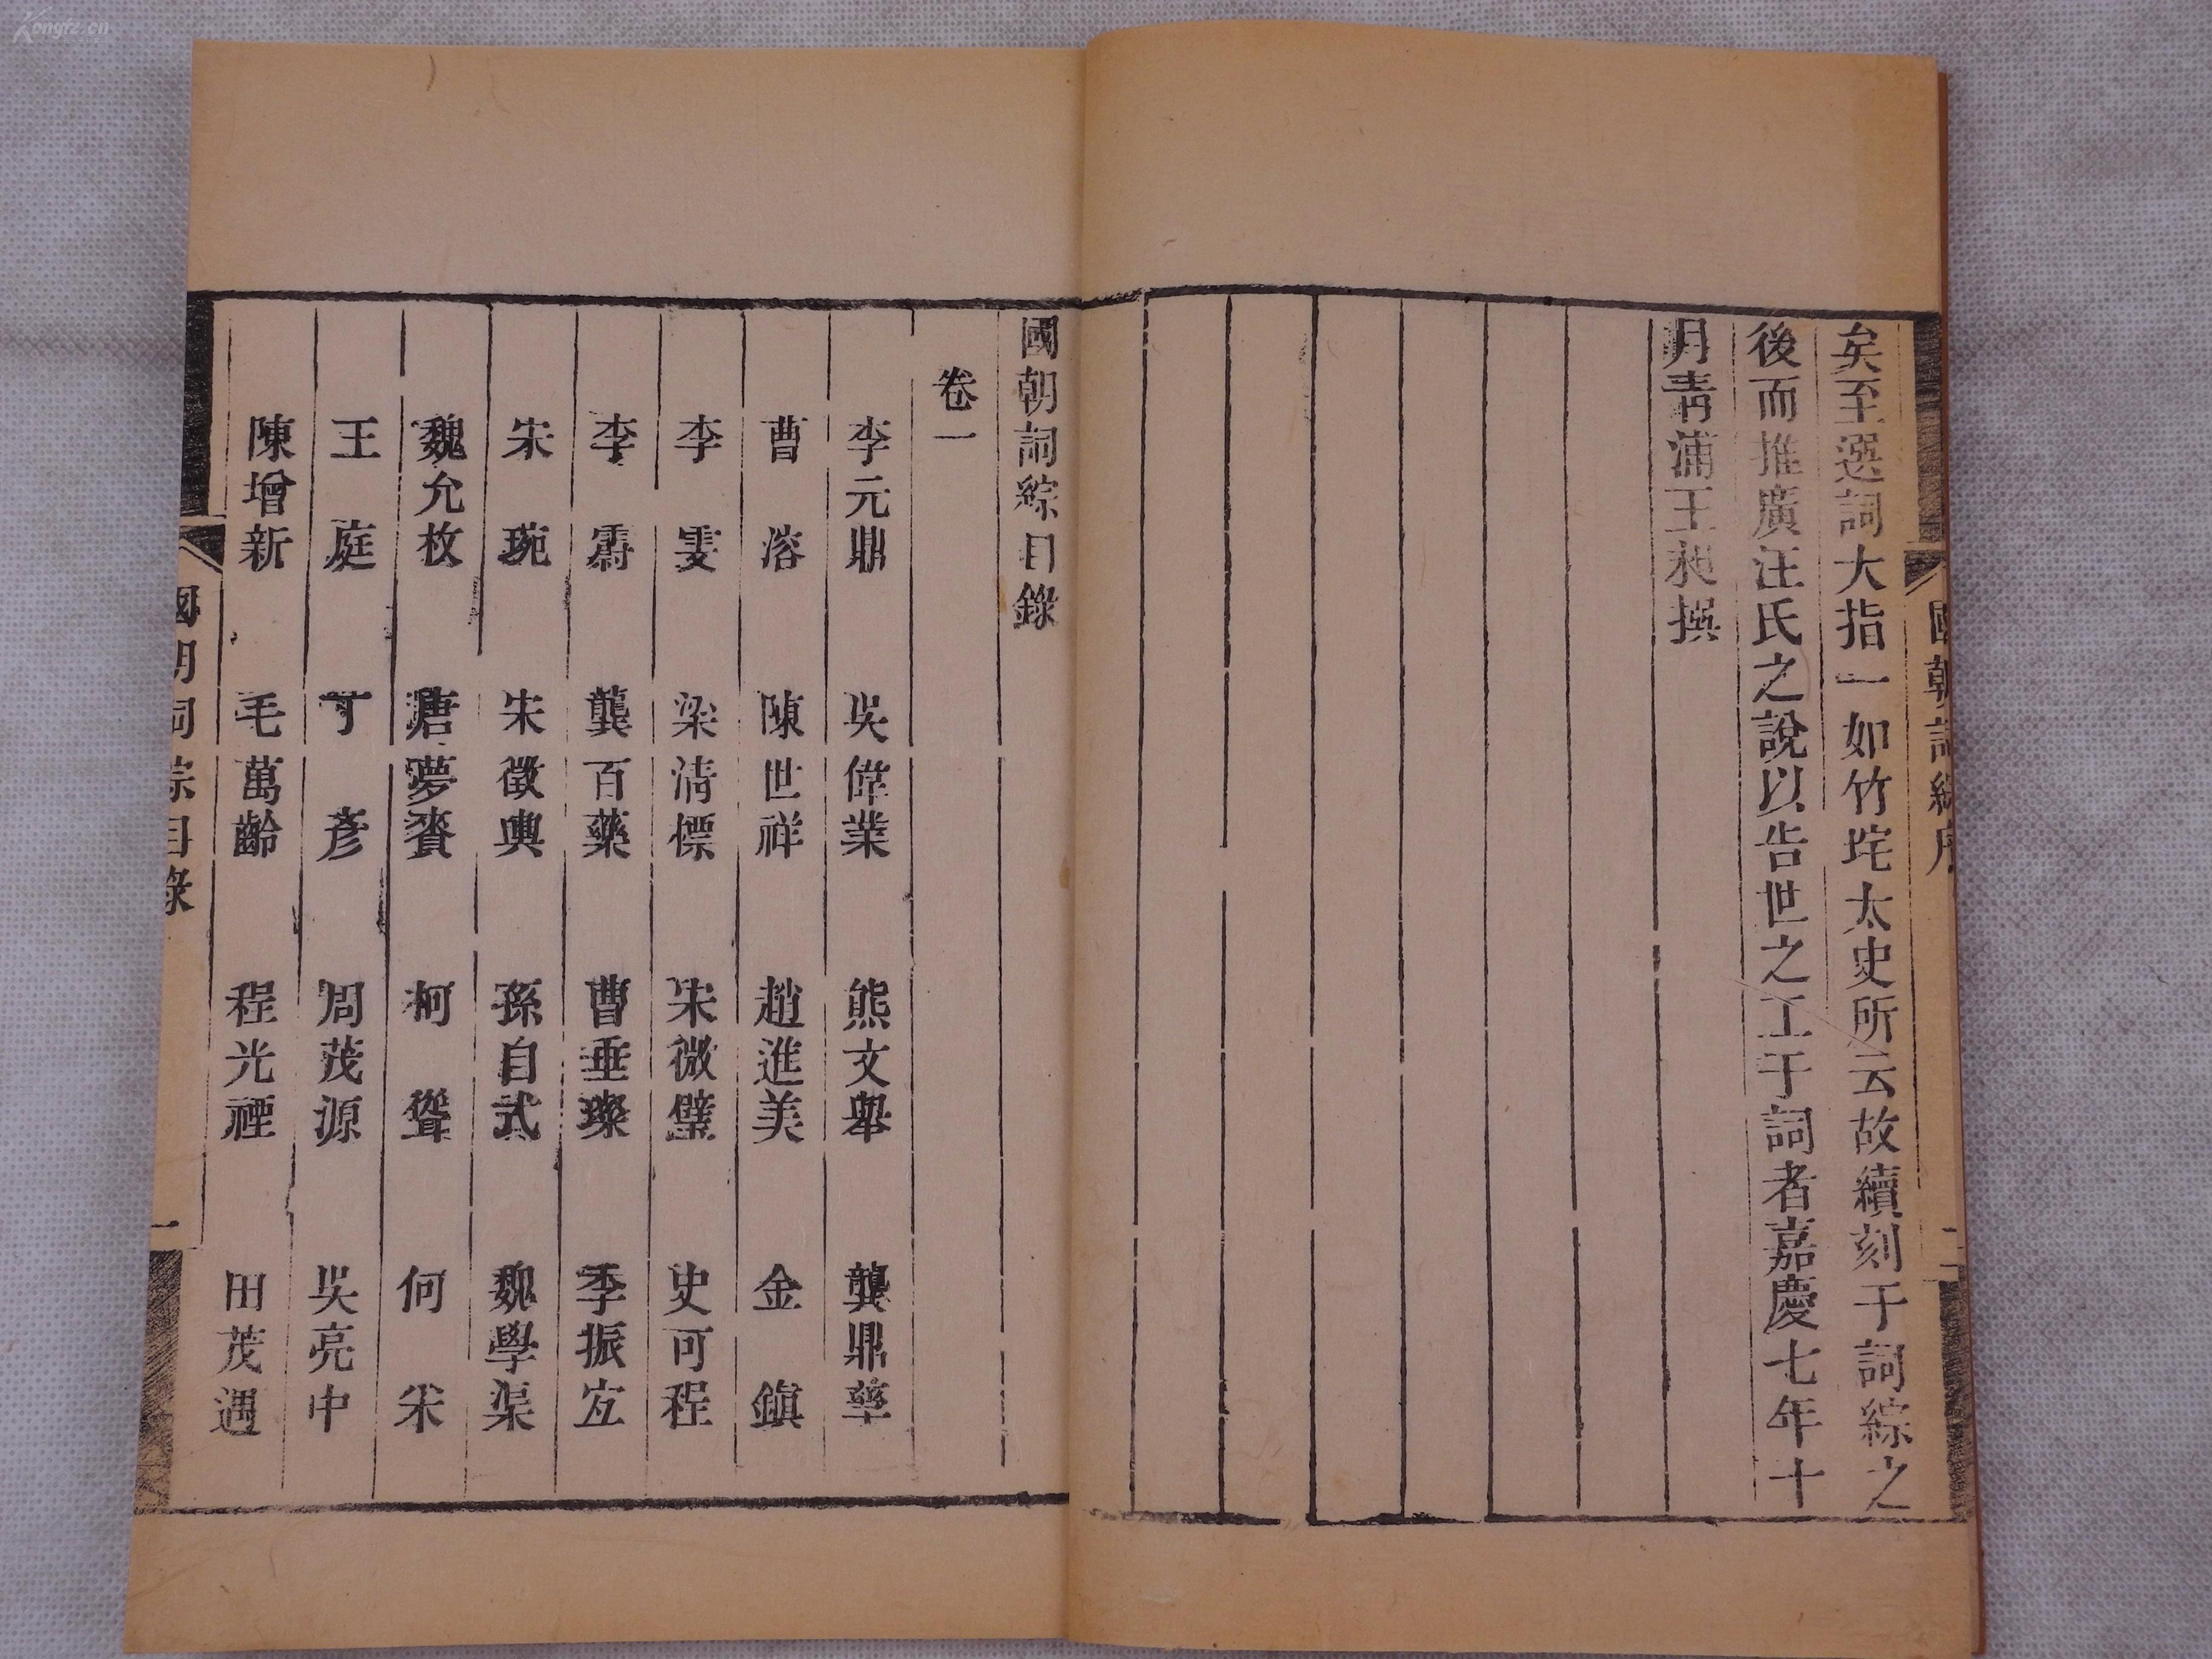 矣至選詞大指一如竹垞太史所云故續刻于詞綜之
後而推廣汪氏之說以告世之工于詞者嘉慶七年十
月靑浦王昶撰
國朝詞綜序
二
國朝詞綜目錄
卷一
李元鼎 吳偉業 熊文舉 龔鼎孳
曹溶 陳世祥 趙進美 金鎭
李雯 梁淸標 宋徵璧 史可程
李霨 龔百藥 曹垂璨 季振宜
宋琬 宋徵輿 孫自式 魏學渠
魏允枚 唐夢賚 柯聳 何采
王庭 丁彥 周茂源 吳亮中
陳增新 毛萬齡 程光禋 田茂遇
國朝詞綜目錄
一
Kongfz.cn